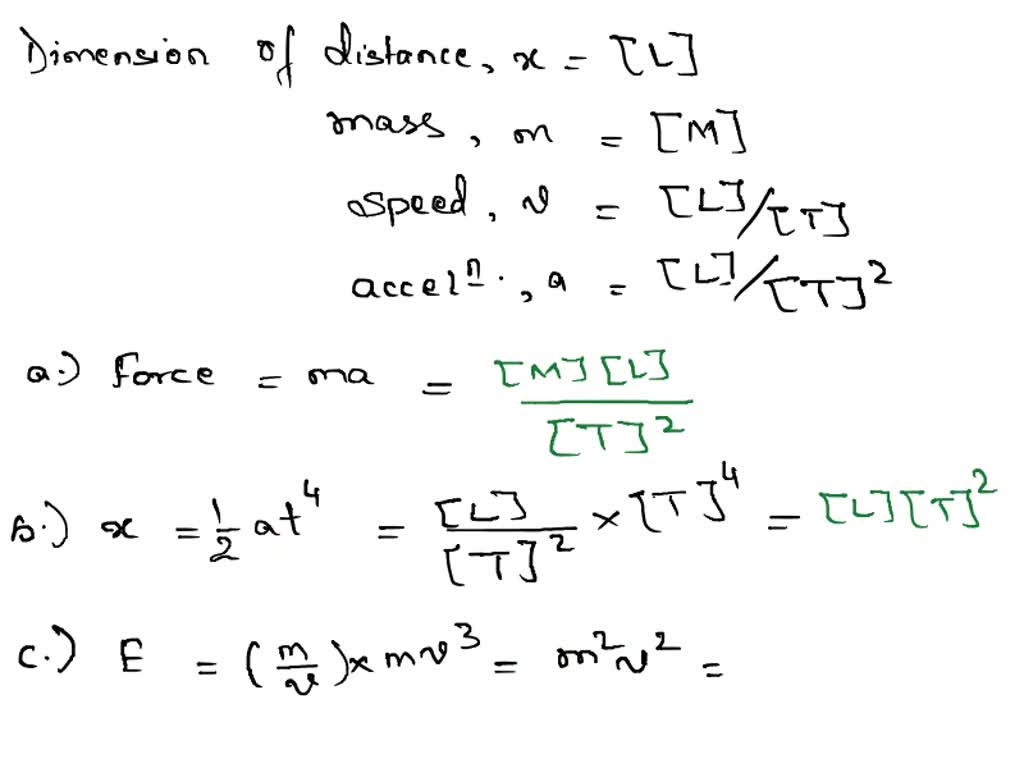 Dimension of distance, x = [L]
mass, m = [M]
speed, v = [L]/[T]
accelⁿ., a = [L]/[T]²
a.) Force = ma = [M][L]/[T]²
b.) x = 1/2 at⁴ = [L]/[T]² × [T]⁴ = [L][T]²
c.) E = (m/v) × mv³ = m²v² =